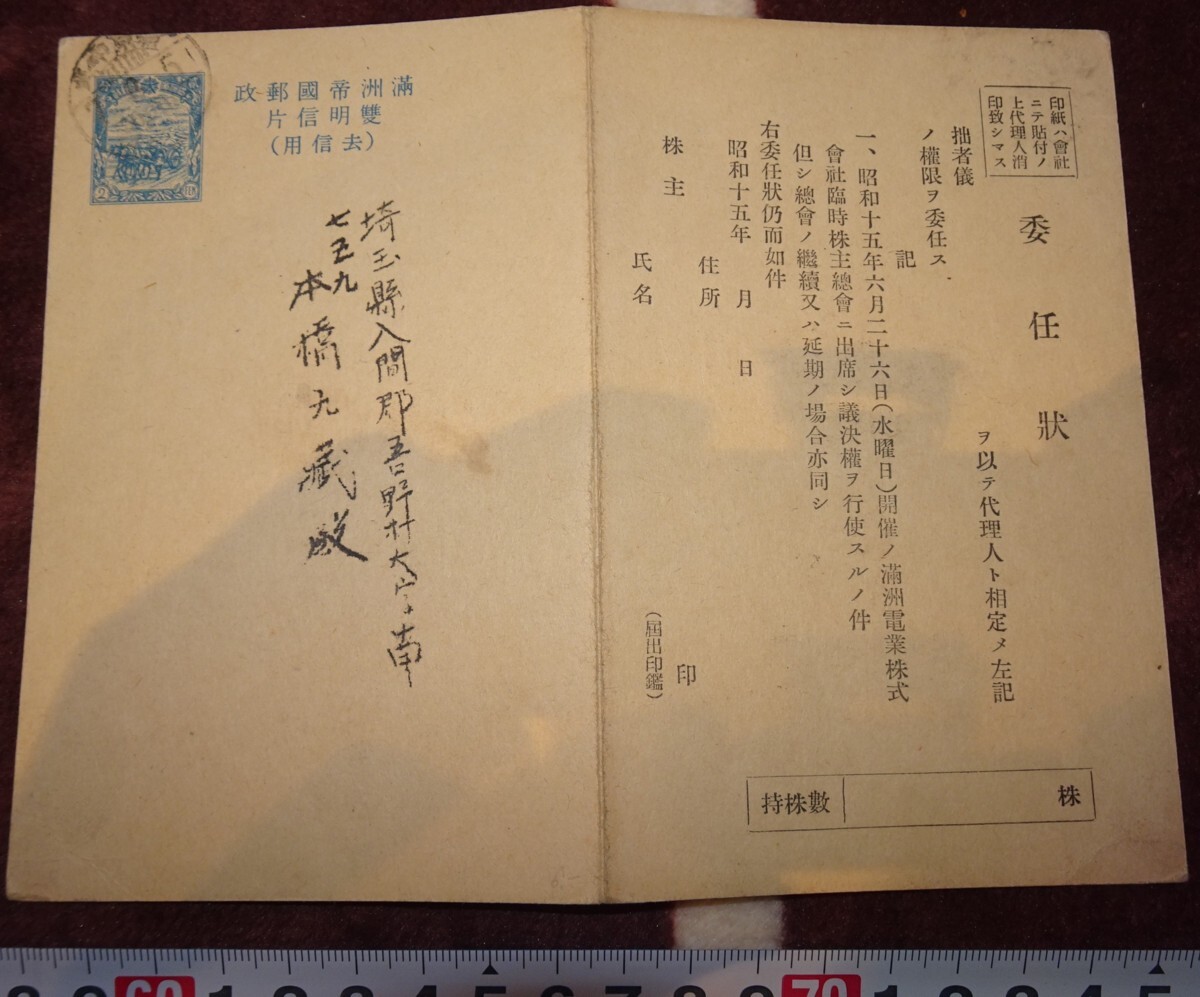 滿洲帝國郵政
雙明信片
(去信用)
2
埼玉縣入間郡吾野村大字南
七五九
本橋元藏殿
印紙ハ會社
ニテ貼付ノ
上代理人消
印致シマス
委任狀
拙者儀 ヲ以テ代理人ト相定メ左記
ノ權限ヲ委任ス
記
一、昭和十五年六月二十六日(水曜日)開催ノ滿洲電業株式
會社臨時株主總會ニ出席シ議決權ヲ行使スルノ件
但シ總會ノ繼續又ハ延期ノ場合亦同シ
右委任狀仍而如件
昭和十五年 月 日
住所
株主
氏名 印
(屆出印鑑)
持株數 株
60 1 2 3 4 5 6 7 8 9 70 1 2 3 4 5